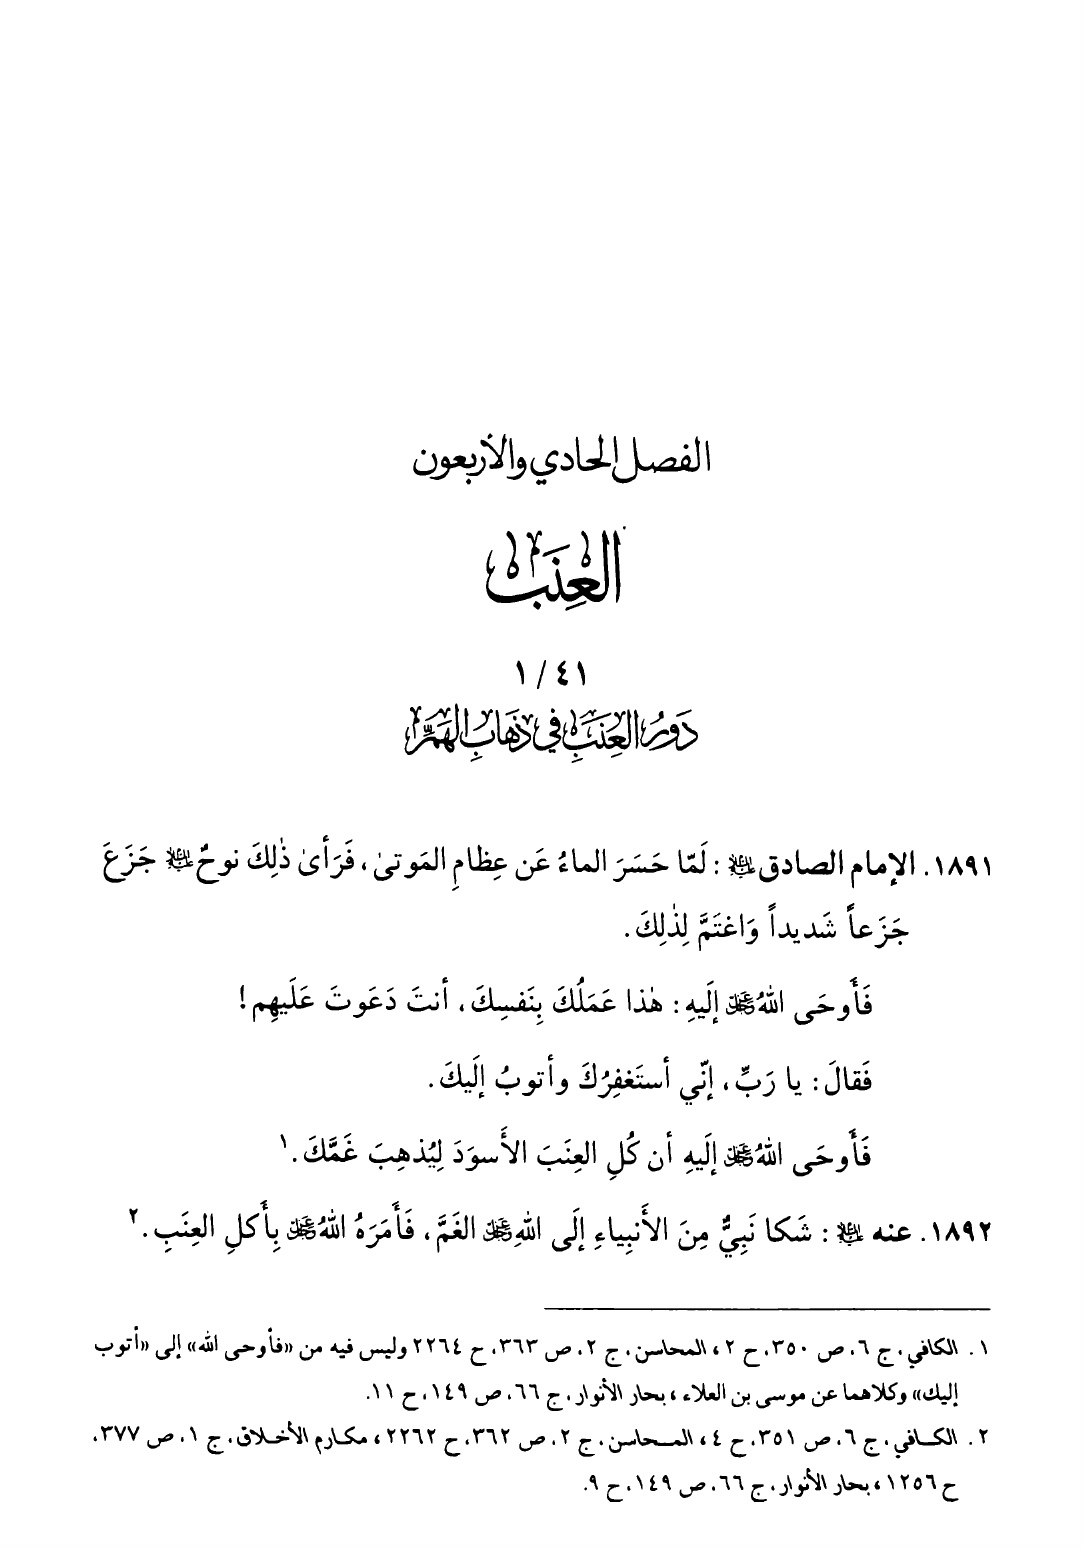 الفصل الحادي والأربعون
العِنَب
٤١ / ١
دَورُ العِنَبِ في ذَهابِ الهَمِّ
١٨٩١. الإمام الصادق ﷷ: لَمّا حَسَرَ الماءُ عَن عِظامِ المَوتىٰ، فَرَأىٰ ذٰلِكَ نوحٌ ﷷ جَزَعَ
جَزَعاً شَديداً وَاغتَمَّ لِذٰلِكَ.
فَأَوحَى اللهُ ﷻ إلَيهِ: هٰذا عَمَلُكَ بِنَفسِكَ، أنتَ دَعَوتَ عَلَيهِم!
فَقالَ: يا رَبِّ، إنّي أستَغفِرُكَ وأتوبُ إلَيكَ.
فَأَوحَى اللهُ ﷻ إلَيهِ أن كُلِ العِنَبَ الأَسوَدَ لِيُذهِبَ غَمَّكَ.١
١٨٩٢. عنه ﷷ: شَكا نَبِيٌّ مِنَ الأَنبِياءِ إلَى اللهِ ﷻ الغَمَّ، فَأَمَرَهُ اللهُ ﷻ بِأَكلِ العِنَبِ.٢
١. الكافي، ج ٦، ص ٣٥٠، ح ٢، المحاسن، ج ٢، ص ٣٦٣، ح ٢٢٦٤ وليس فيه من «فأوحى الله» إلى «أتوب
إليك» وكلاهما عن موسى بن العلاء، بحار الأنوار، ج ٦٦، ص ١٤٩، ح ١١.
٢. الكافي، ج ٦، ص ٣٥١، ح ٤، المحاسن، ج ٢، ص ٣٦٢، ح ٢٢٦٢، مكارم الأخلاق، ج ١، ص ٣٧٧،
ح ١٢٥٦، بحار الأنوار، ج ٦٦، ص ١٤٩، ح ٩.